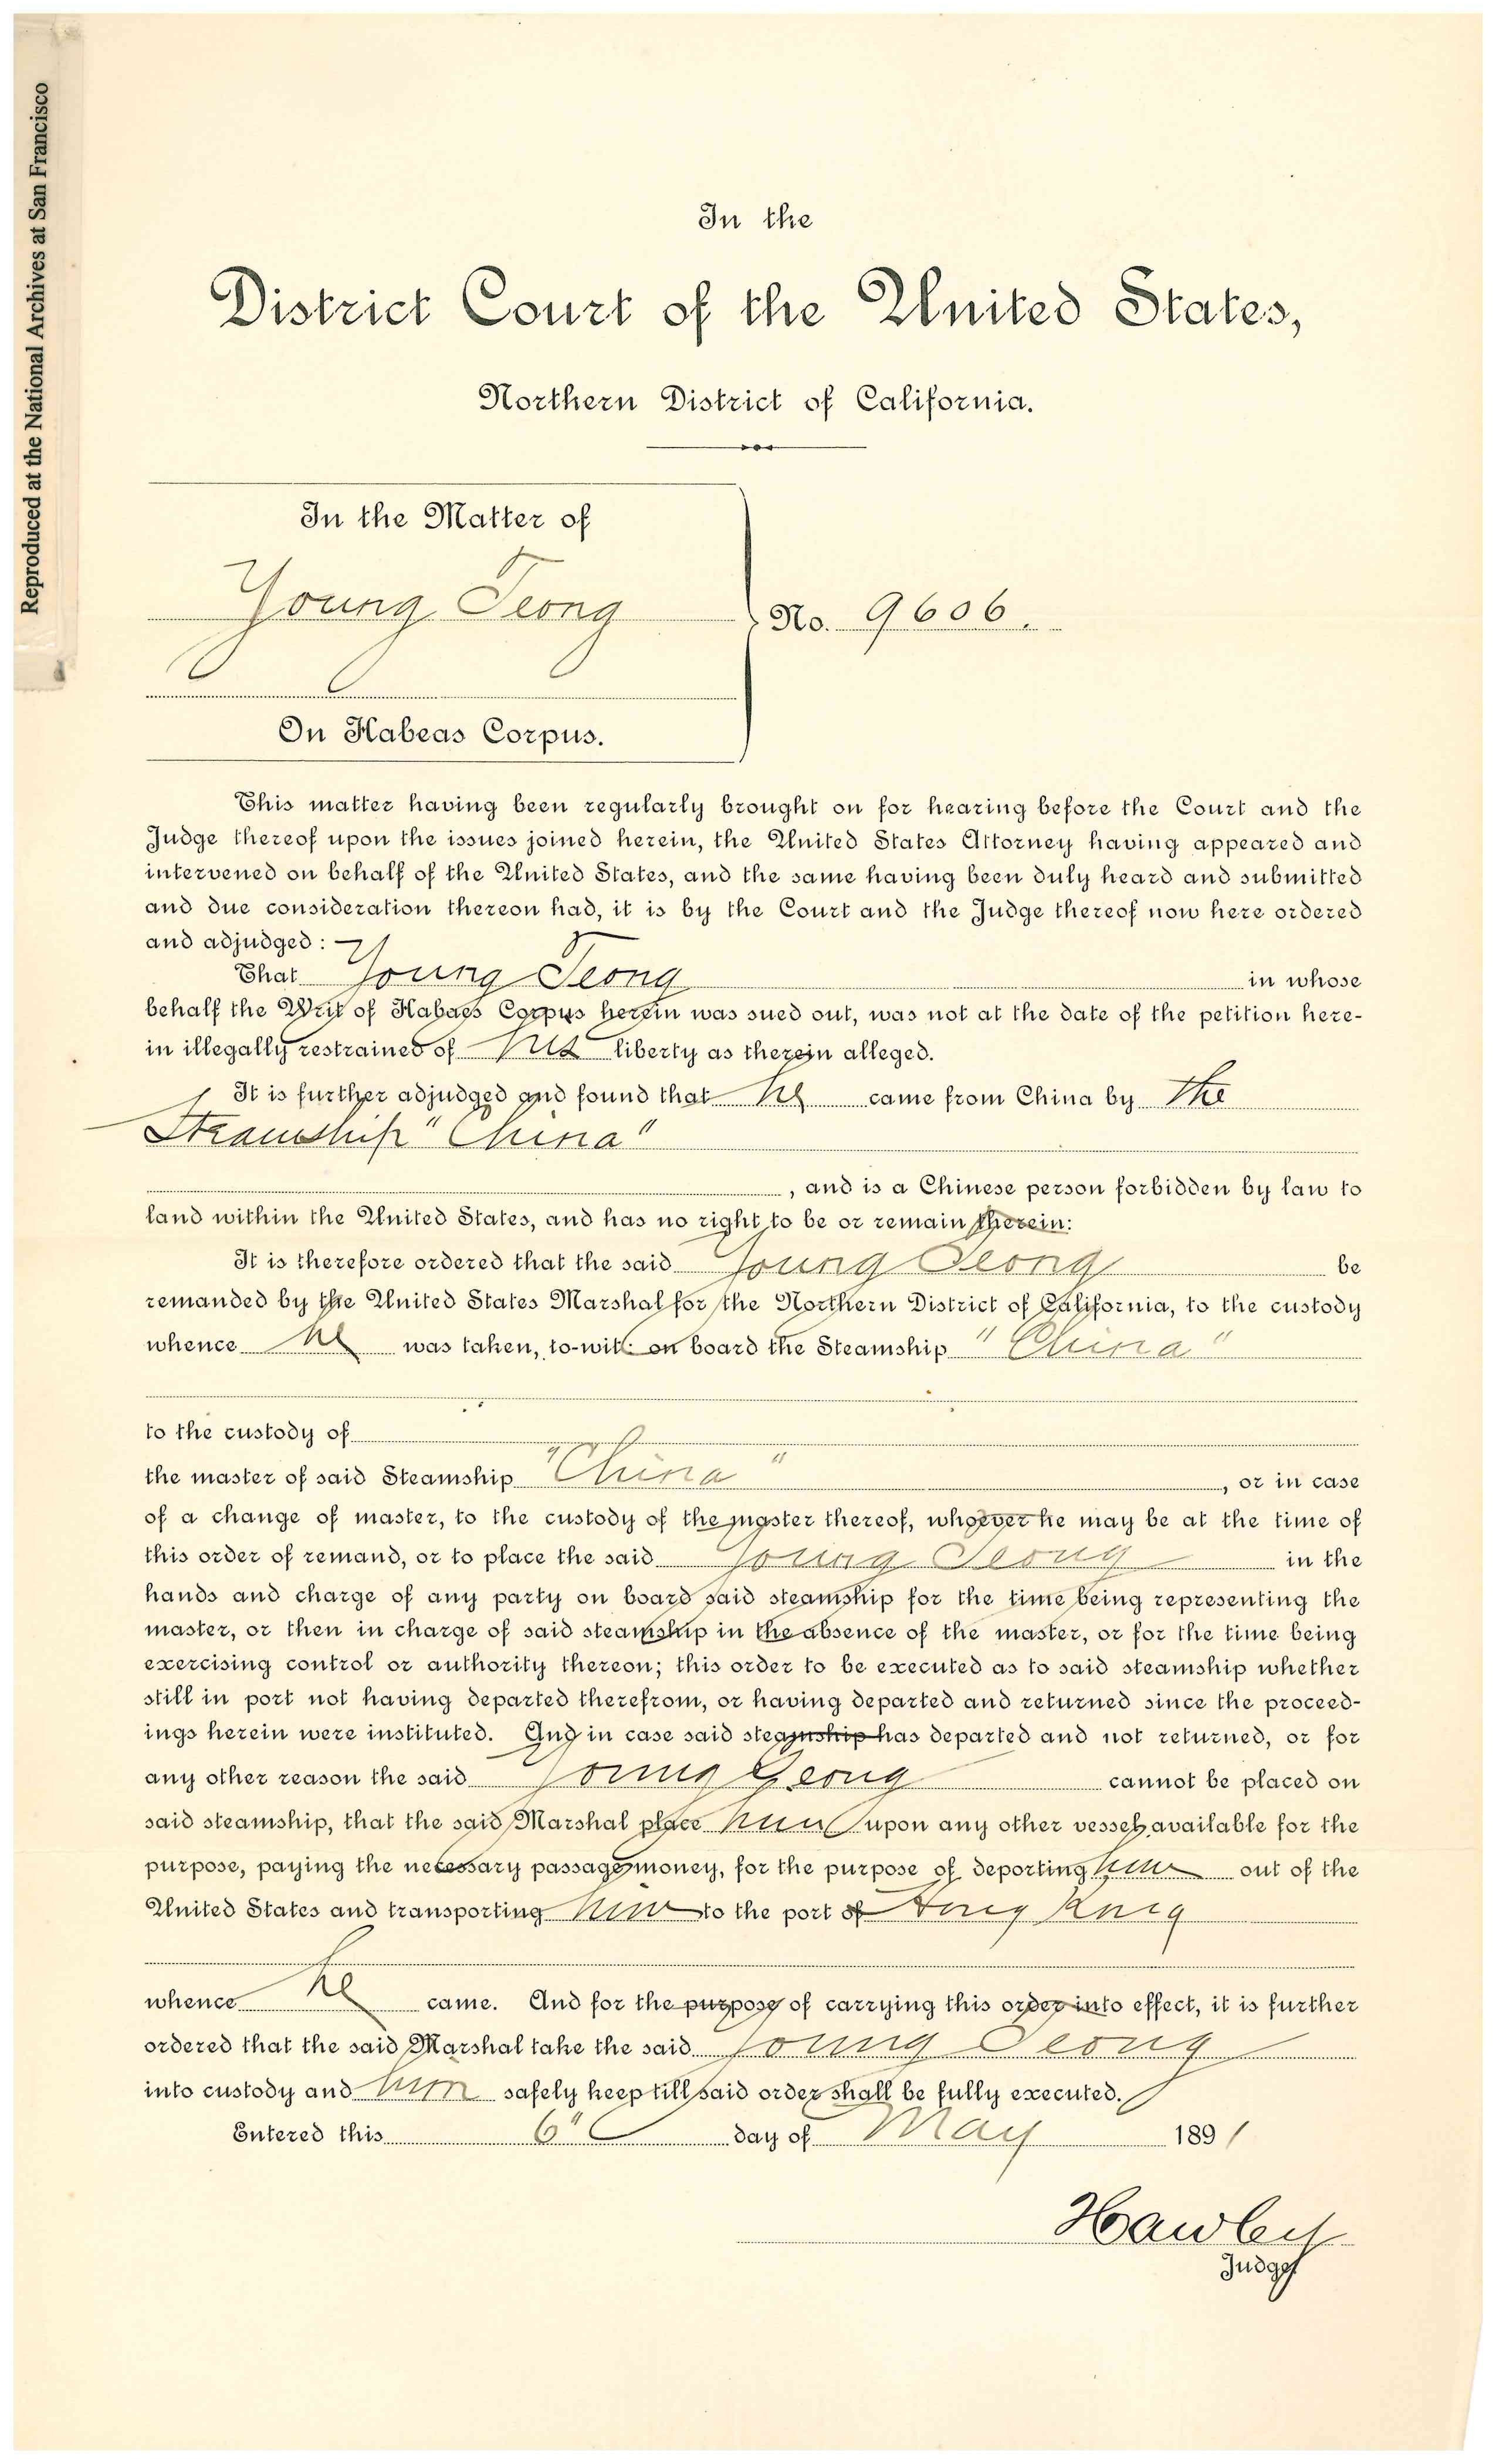 Reproduced at the National Archives at San Francisco
In the
District Court of the United States,
Northern District of California.
In the Matter of
Young Jeong
No. 9606.
On Habeas Corpus.
This matter having been regularly brought on for hearing before the Court and the
Judge thereof upon the issues joined herein, the United States Attorney having appeared and
intervened on behalf of the United States, and the same having been duly heard and submitted
and due consideration thereon had, it is by the Court and the Judge thereof now here ordered
and adjudged:
That Young Jeong in whose
behalf the Writ of Habaes Corpus herein was sued out, was not at the date of the petition here-
in illegally restrained of his liberty as therein alleged.
It is further adjudged and found that he came from China by the
Steamship "China"
, and is a Chinese person forbidden by law to
land within the United States, and has no right to be or remain therein:
It is therefore ordered that the said Young Jeong be
remanded by the United States Marshal for the Northern District of California, to the custody
whence he was taken, to-wit: on board the Steamship "China"
to the custody of
the master of said Steamship "China" , or in case
of a change of master, to the custody of the master thereof, whoever he may be at the time of
this order of remand, or to place the said Young Jeong in the
hands and charge of any party on board said steamship for the time being representing the
master, or then in charge of said steamship in the absence of the master, or for the time being
exercising control or authority thereon; this order to be executed as to said steamship whether
still in port not having departed therefrom, or having departed and returned since the proceed-
ings herein were instituted. And in case said steamship has departed and not returned, or for
any other reason the said Young Jeong cannot be placed on
said steamship, that the said Marshal place him upon any other vessel available for the
purpose, paying the necessary passage money, for the purpose of deporting him out of the
United States and transporting him to the port of Hong Kong
whence he came. And for the purpose of carrying this order into effect, it is further
ordered that the said Marshal take the said Young Jeong
into custody and him safely keep till said order shall be fully executed.
Entered this 6" day of May 1891
Hawley
Judge